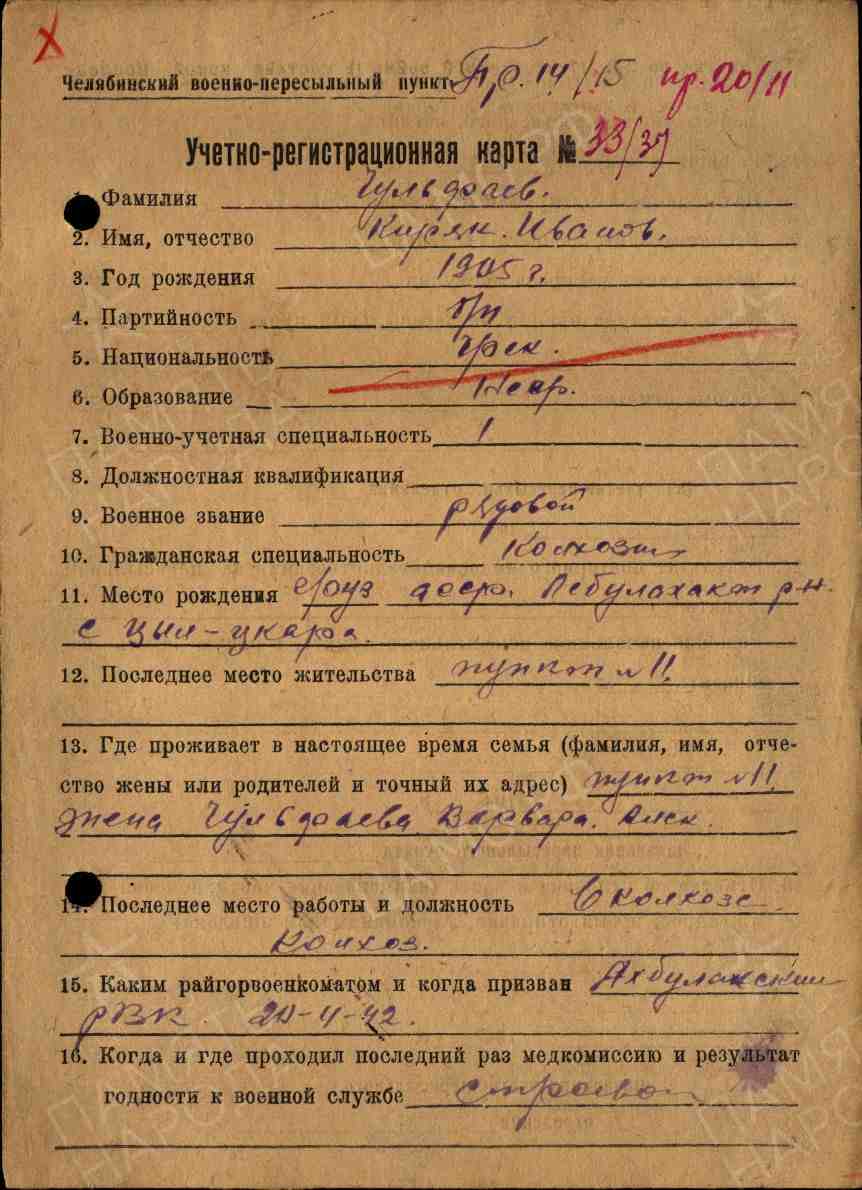 Челябинский военно-пересыльный пункт Пр. 14/15 пр. 20/11
Учетно-регистрационная карта № 33/37
Фамилия Гульдоаев.
2. Имя, отчество Киряк. Иванов.
3. Год рождения 1905 г.
4. Партийность б/п
5. Национальность Грек.
6. Образование Негр.
7. Военно-учетная специальность 1
8. Должностная квалификация
9. Военное звание рядовой
10. Гражданская специальность Колхозник
11. Место рождения р-н.
с Цыл-
12. Последнее место жительства пункт № 11.
13. Где проживает в настоящее время семья (фамилия, имя, отче-
ство жены или родителей и точный их адрес) пункт № 11.
Жена Гульдоаева Варвара. Алек.
14. Последнее место работы и должность В колхозе
Колхоз.
15. Каким райгорвоенкоматом и когда призван Ахбулакский
РВК.
16. Когда и где проходил последний раз медкомиссию и результат
годности к военной службе строевой